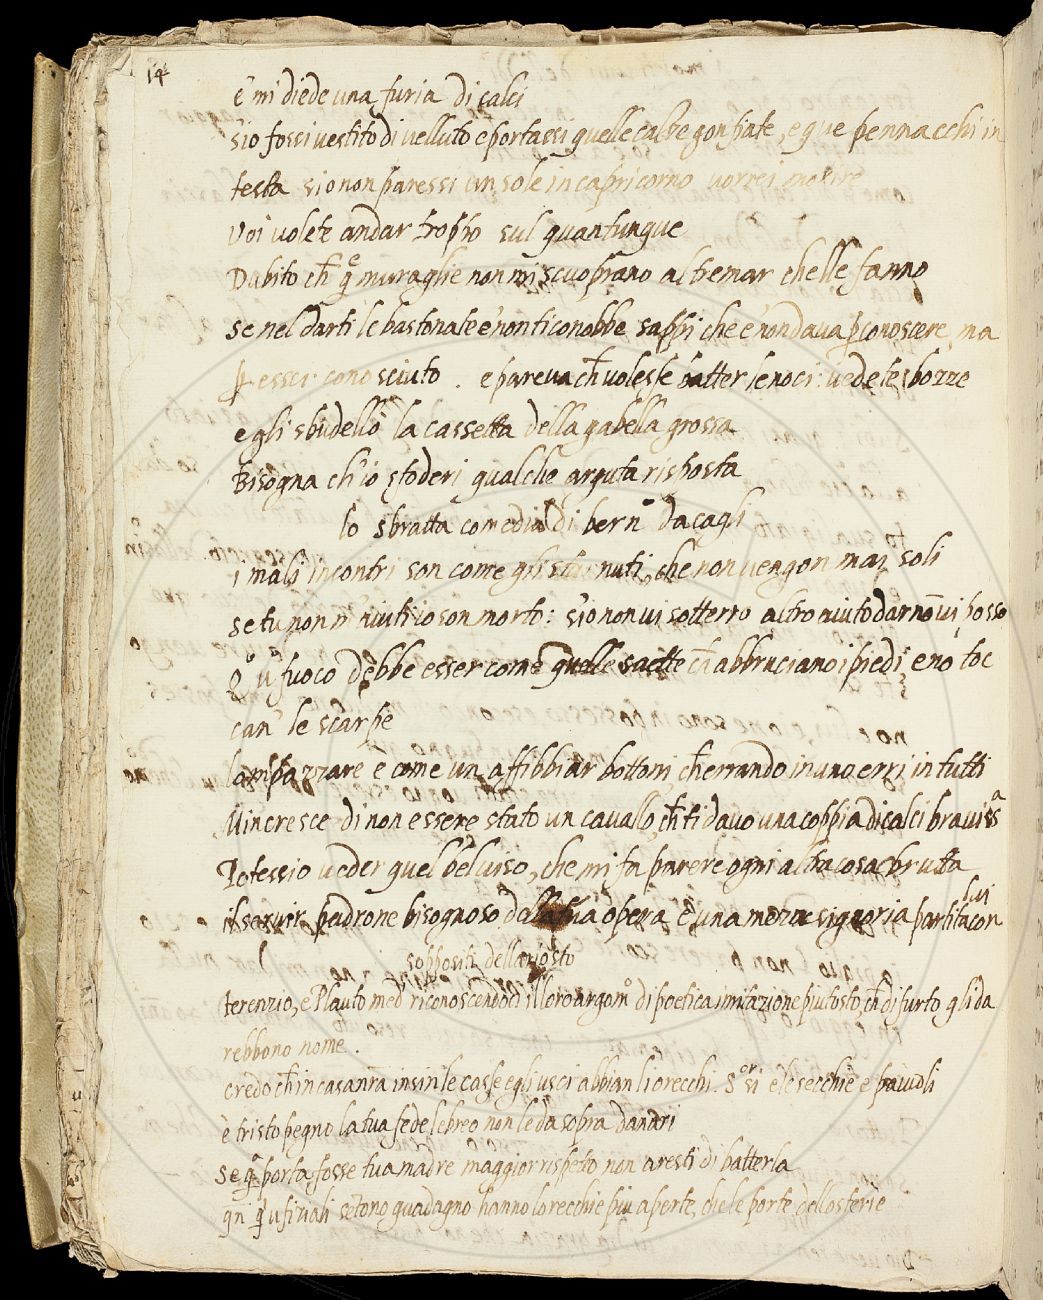 14
e mi diede una furia di calci
s'io fossi vestito di velluto e portassi quelle calze gonfiate, e que pennacchi in
testa s'io non paressi un sole in capricorno vorrei morire
Voi volete andar troppo sul quantunque
Dubito ch̃ q̃e muraglie non mi scuoprano al tremar chelle fanno
se nel darti le bastonate e' non ti conobbe sappi che e' non dava ꝑ conoscere, ma
ꝑ esser conosciuto . e pareva ch̃ volesse batter le noci: vedete bozze
egli sbudellò la cassetta della gabella grossa
Bisogna ch'io sfoderi qualche arguta risposta
lo sbratta comedia di bern° da cagli
i mali incontri son come gli starnuti, che non vengon mai soli
se tu non m'aiuti io son morto: s'io non vi sotterro altro aiuto dar nō vi posso
fuoco debbe esser come quelle saette ch̃ abbruciano i piedi, e no toc
can' le scarpe
lo'mpazzare è come un affibbiar bottoni ch̃ errando in uno erri in tutti
M'incresce di non essere stato un cavallo, ch̃ ti davo una coppia di calci braviss.a
Potess'io veder quel bel viso, che mi fa parere ogni altra cosa brutta
il servir padrone bisognoso della tua opera è una mezza signoria partita con
lui
soppositi dell ariosto
terenzio, e Plauto med.i riconoscendo di illoro argom.o di poetica imitazione piu tosto, ch̃ di furto gli da
rebbono nome.
credo ch̃ in casa nr̃a insin le casse e gli usci abbian li orecchi. S.or si e le secchie e paiuoli
è tristo pegno la tua fede lebreo non le da sopra danari
se q̃a porta fosse tua madre maggior rispetto non aresti di batterla
guadagno hanno lorecchie piu aperte, che le porte dellosterie